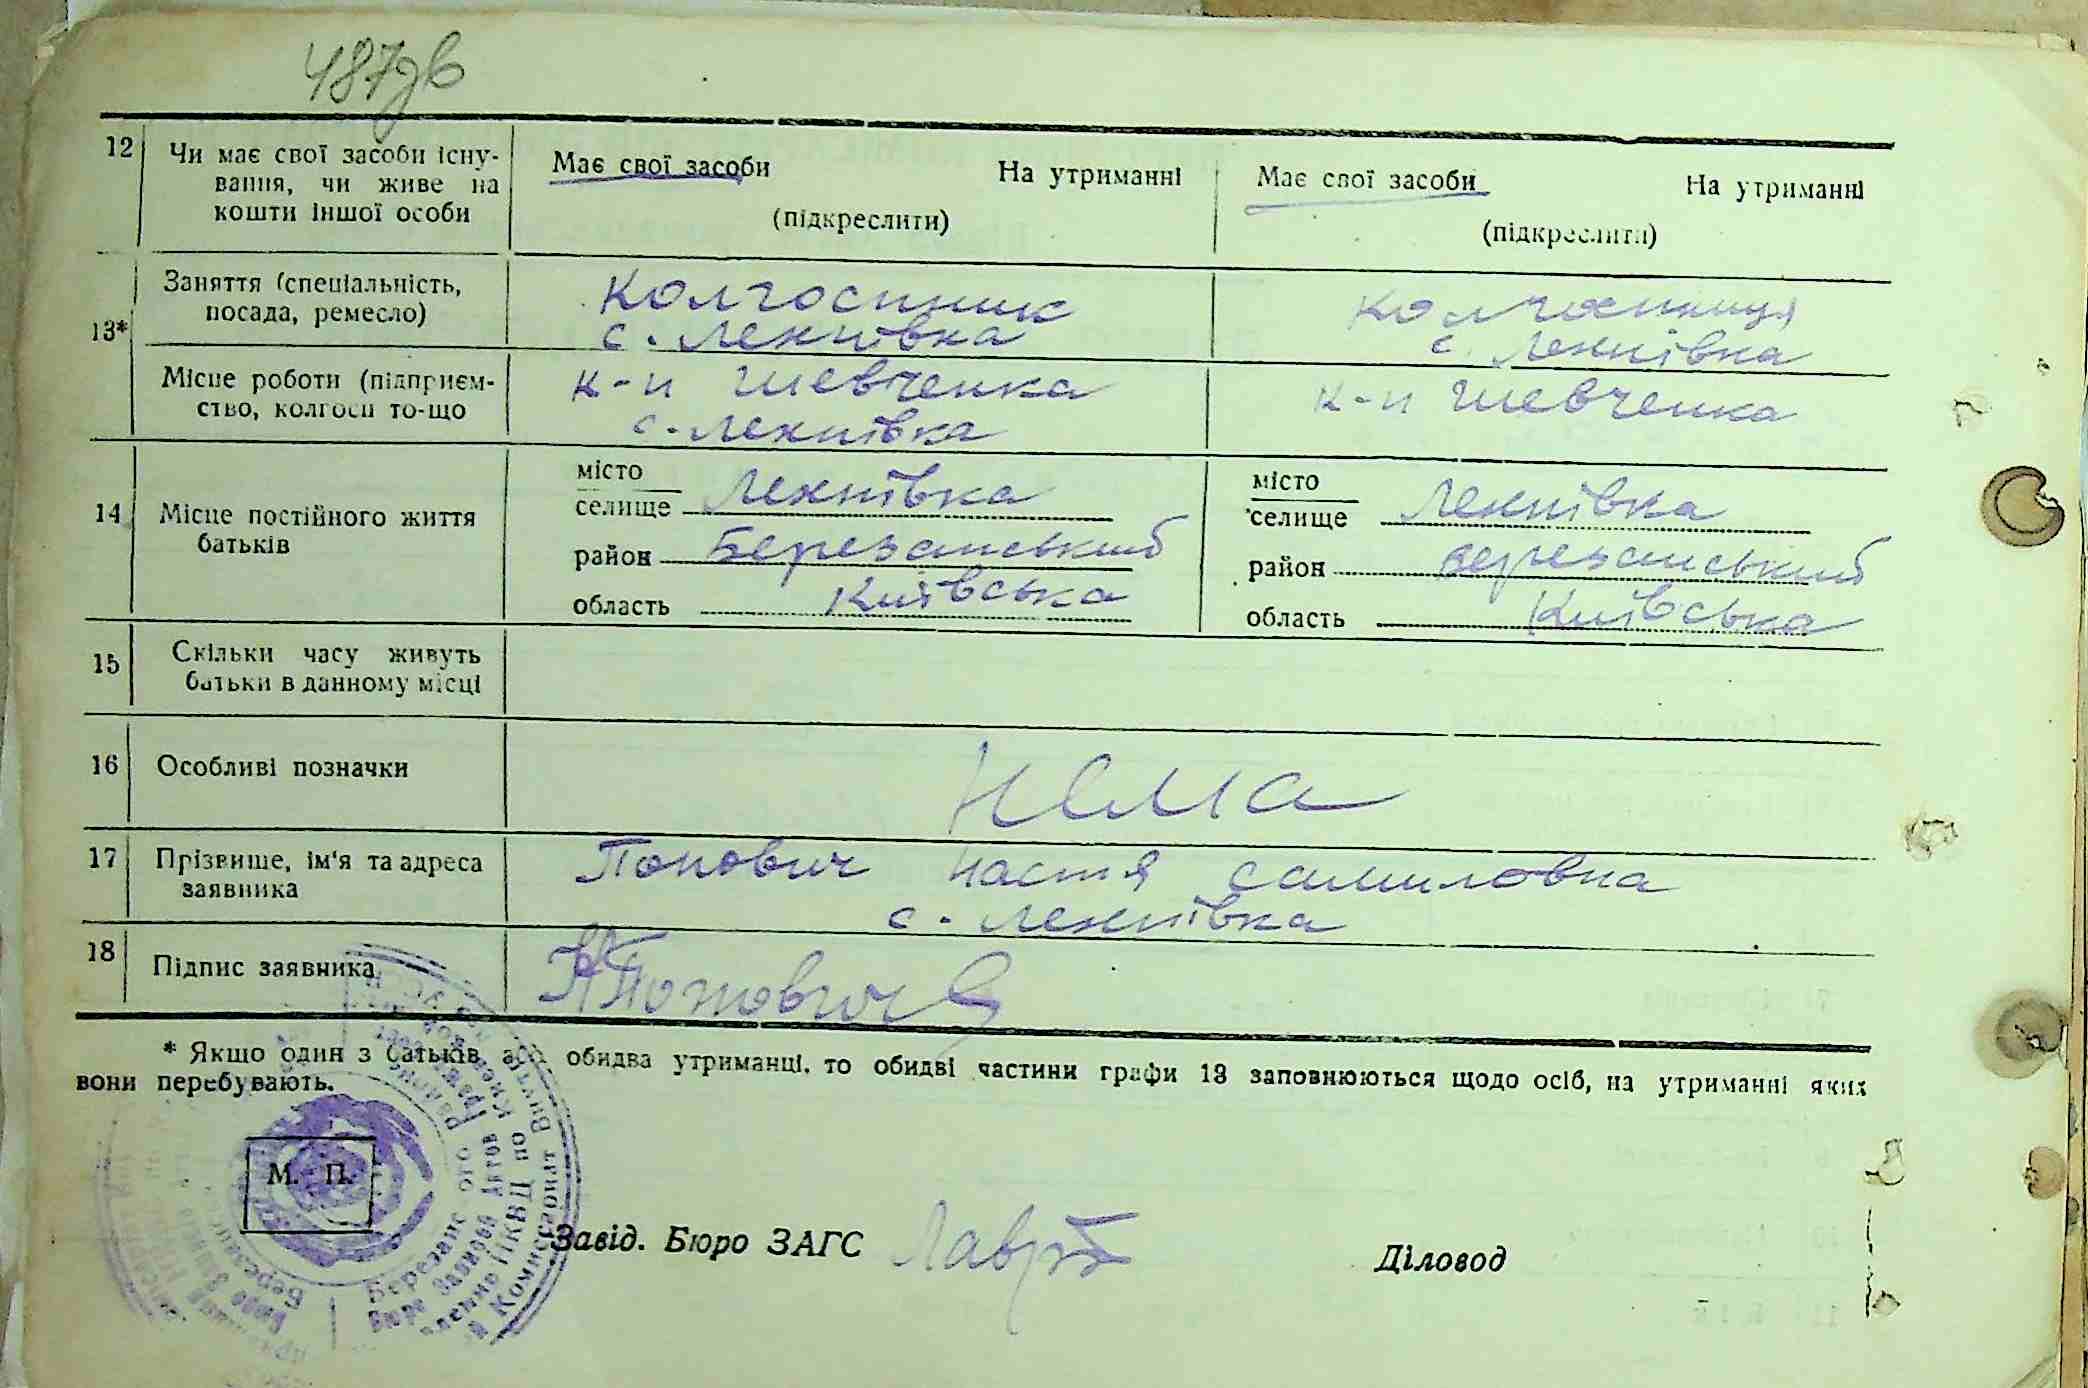 487дв
12 Чи має свої засоби існу-
вання, чи живе на
кошти іншої особи
Має свої засоби На утриманні
(підкреслити)
Має свої засоби На утриманні
(підкреслити)
13* Заняття (спеціальність,
посада, ремесло)
Колгоспник
с. Лехнівка
колгоспниця
с. Лехнівка
Місце роботи (підприєм-
ство, колгосп то-що
к-п Шевченка
с. Лехнівка
к-п Шевченка
14 Місце постійного життя
батьків
місто
селище Лехнівка
район Березанський
область Київська
місто
селище Лехнівка
район Березанський
область Київська
15 Скільки часу живуть
батьки в данному місці
16 Особливі позначки
нема
17 Прізвище, ім'я та адреса
заявника
Попович Настя Самиловна
с. Лехнівка
18 Підпис заявника
НПопович
* Якщо один з батьків або обидва утриманці, то обидві частини графи 13 заповнюються щодо осіб, на утриманні яких
вони перебувають.
М. П.
Завід. Бюро ЗАГС Діловод